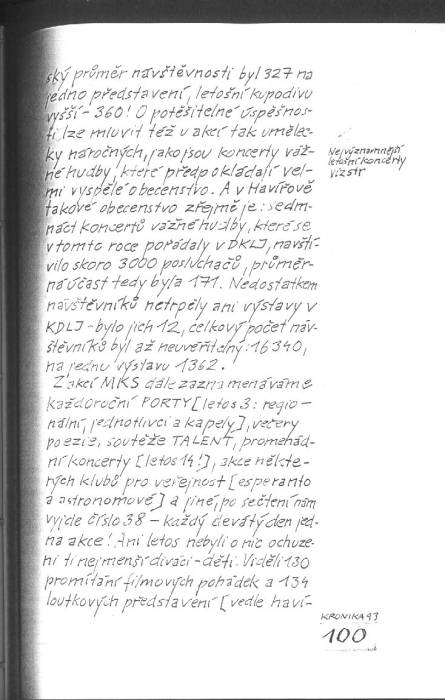 ský průměr návštěvnosti byl 327 na
jedno představení, letošní kupodivu
vyšší - 360! O potěšitelné úspěšnos-
ti lze mluvit též u akcí tak umělec-
ky náročných, jako jsou koncerty váž-
né hudby, které předpokládají vel-
mi vyspělé obecenstvo. A v Havířově
takové obecenstvo zřejmě je: sedm-
náct koncertů vážné hudby, které se
v tomto roce pořádaly v DKLJ, navští-
vilo skoro 3000 posluchačů, průměr-
ná účast tedy byla 171. Nedostatkem
návštěvníků netrpěly ani výstavy v
KDLJ - bylo jich 12, celkový počet náv-
štěvníků byl až neuvěřitelný: 16 340,
na jednu výstavu 1362.
Z akcí MKS dále zaznamenáváme
každoroční PORTY [letos 3: regio-
nální, jednotlivci a kapely], večery
poezie, soutěže TALENT, promenád-
ní koncerty [letos 14!], akce někte-
rých klubů pro veřejnost [esperanto
a astronomové] a jiné, po sečtení nám
vyjde číslo 38 - každý devátý den jed-
na akce! Ani letos nebyli o nic ochuze-
ni ti nejmenší diváci - děti. Viděli 130
promítání filmových pohádek a 134
loutkových představení [vedle haví-
Nejvýznamnější
letošní koncerty
viz str
KRONIKA 93
100